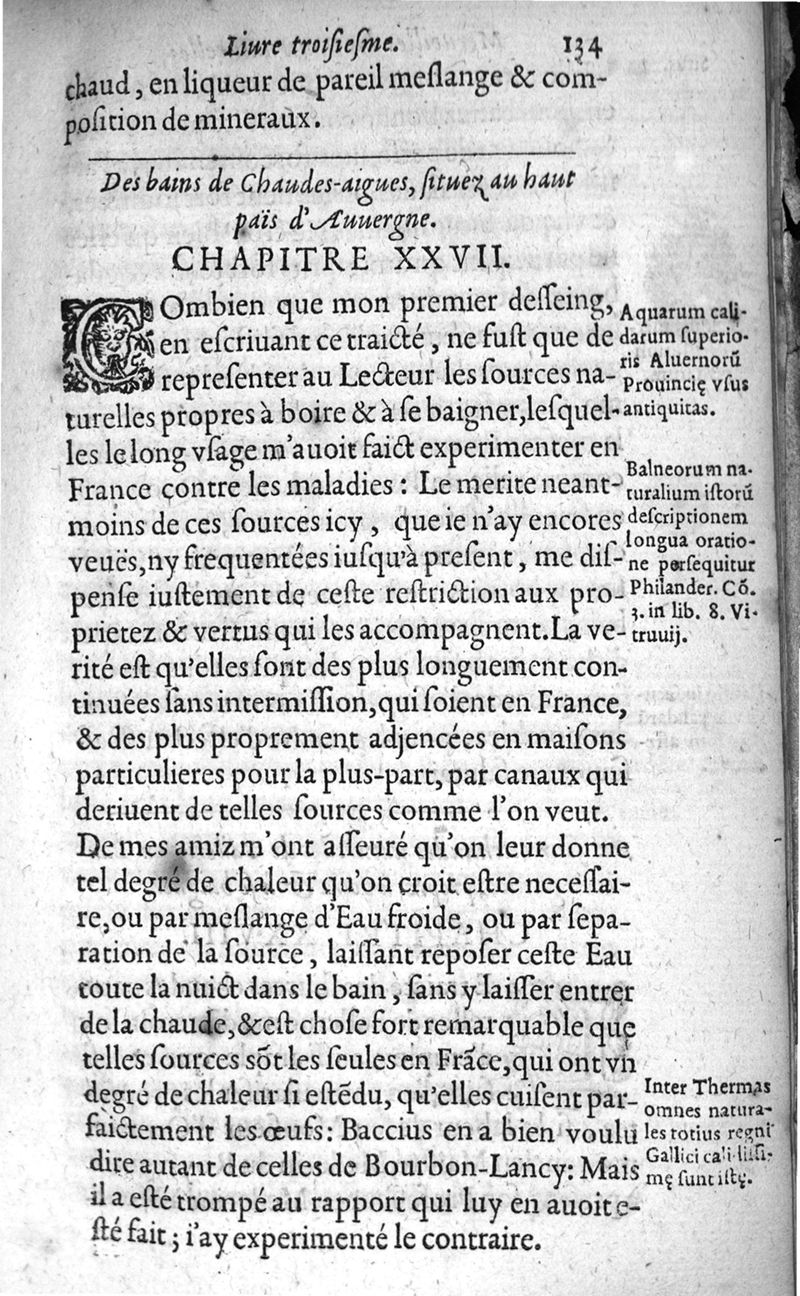 Liure troiſieſme. 134
chaud, en liqueur de pareil meſlange & com-
poſition de mineraux.
Des bains de Chaudes-aigues, ſituez au haut
païs d'Auuergne.
CHAPITRE XXVII.
COmbien que mon premier deſſeing,
en eſcriuant ce traicté, ne fuſt que de
repreſenter au Lecteur les ſources na-
turelles propres à boire & à ſe baigner, leſquel-
les le long vſage m'auoit faict experimenter en
France contre les maladies : Le merite neant-
moins de ces ſources icy, que ie n'ay encores
veuës, ny frequentées iuſqu'à preſent, me diſ-
penſe iuſtement de ceſte reſtriction aux pro-
prietez & vertus qui les accompagnent. La ve-
rité eſt qu'elles ſont des plus longuement con-
tinuées ſans intermiſſion, qui ſoient en France,
& des plus proprement adjencées en maiſons
particulieres pour la plus-part, par canaux qui
deriuent de telles ſources comme l'on veut.
De mes amiz m'ont aſſeuré qu'on leur donne
tel degré de chaleur qu'on croit eſtre neceſſai-
re, ou par meſlange d'Eau froide, ou par ſepa-
ration de la ſource, laiſſant repoſer ceſte Eau
toute la nuict dans le bain, ſans y laiſſer entrer
de la chaude, & eſt choſe fort remarquable que
telles ſources sõt les ſeules en Frãce, qui ont vn
degré de chaleur ſi eſtẽdu, qu'elles cuiſent par-
faictement les œufs: Baccius en a bien voulu
dire autant de celles de Bourbon-Lancy: Mais
il a eſté trompé au rapport qui luy en auoit e-
ſté fait ; i'ay experimenté le contraire.
Aquarum cali-
darum ſuperio-
ris Aluernorũ
Prouincię vſus
antiquitas.
Balneorum na-
turalium iſtorũ
deſcriptionem
longua oratio-
ne perſequitur
Philander. Cõ.
3. in lib. 8. Vi-
truuij.
Inter Thermas
omnes natura-
les totius regni
Gallici calidiſſi-
mę ſunt iſtę.